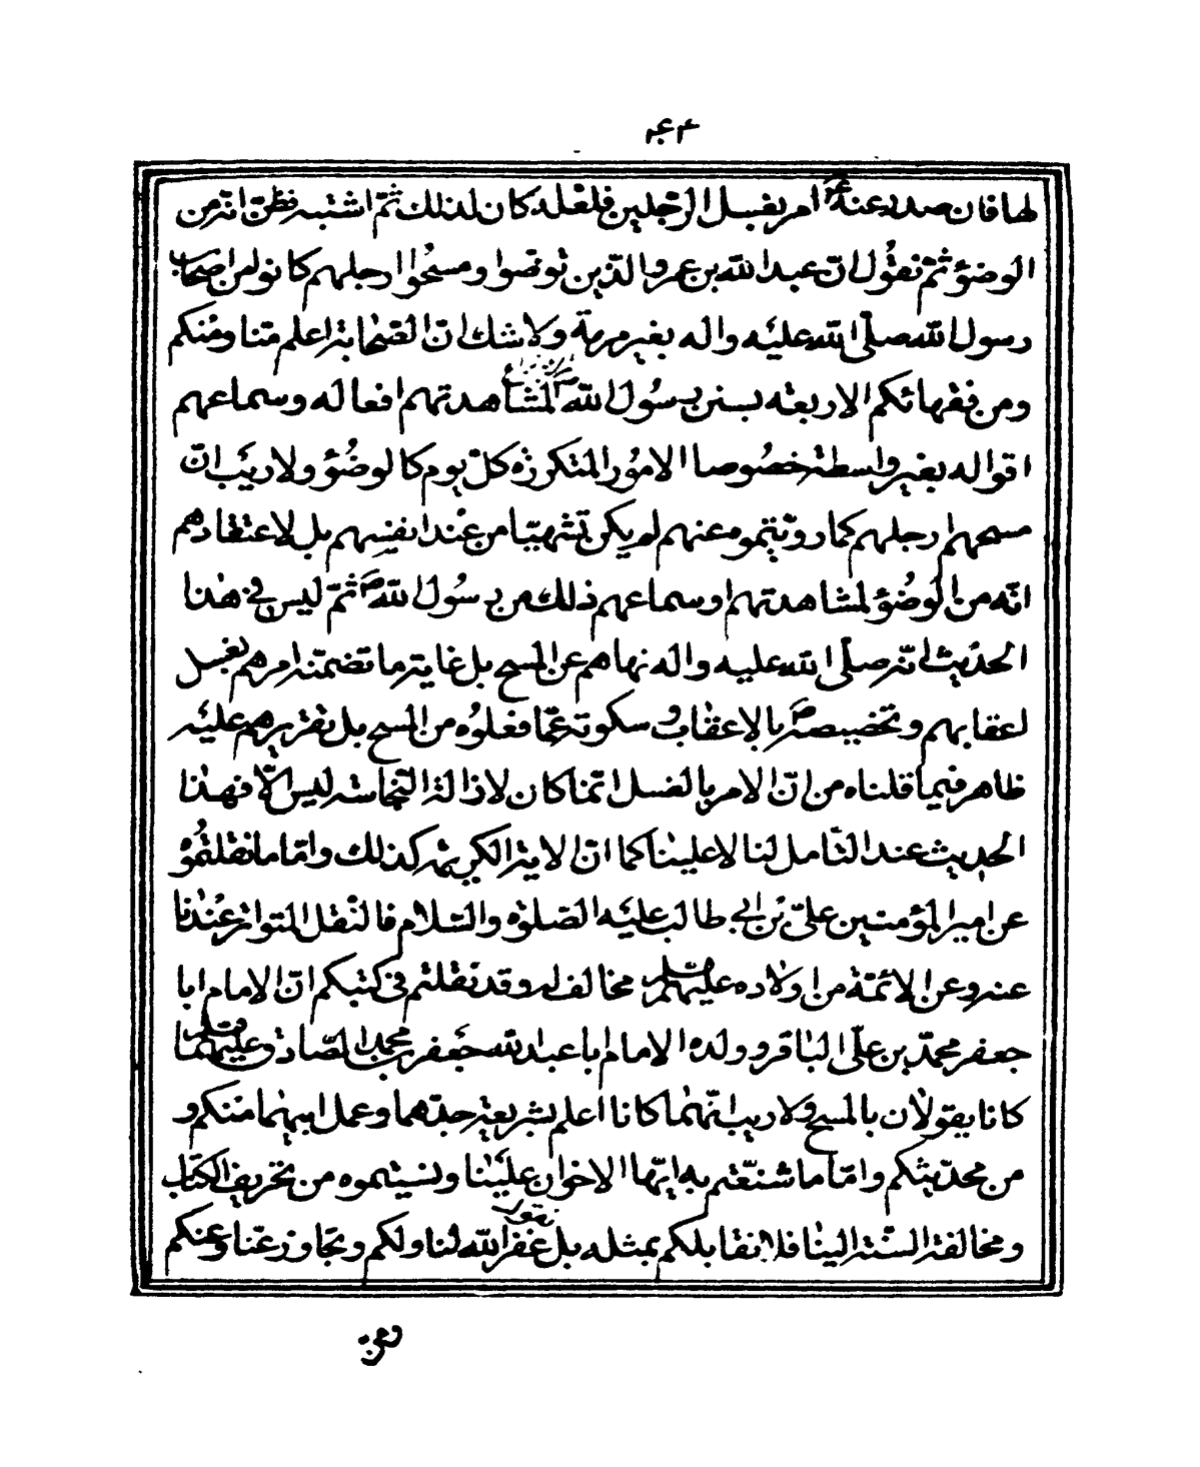 لها فان صدر عنه أمر بغسل الرجلين فلعله كان لذلك ثم اشتبه فظن انه من
الوضوء ثم نقول ان عبد الله بن عمر والذين توضوا ومسحوا ارجلهم كانو من اصحاب
رسول الله صلى الله عليه واله بغير مرية ولا شك ان الصحابة اعلم منا ومنكم
ومن فقهائكم الاربعة بسنن رسول الله ص لمشاهدتهم افعاله وسماعهم
اقواله بغير واسطة خصوصا الامور المتكررة كل يوم كالوضوء ولا ريب ان
مسحهم ارجلهم كما رويتموه عنهم لم يكن تشهيا من عند انفسهم بل لاعتقادهم
انه من الوضوء لمشاهدتهم او سماعهم ذلك من رسول الله ص ثم ليس في هذا
الحديث انه صلى الله عليه واله نهاهم عن المسح بل غاية ما تضمنه امرهم بغسل
اعقابهم وتخصيصه ص بالاعقاب وسكوته عما فعلوه من المسح بل تقريرهم عليه
ظاهر فيما قلناه من ان الامر بالغسل انما كان لازالة النجاسة ليس الا فهذا
الحديث عند التامل لنا لا علينا كما ان الاية الكريمة كذلك واما ما نقلتموه
عن امير المؤمنين علي بن ابي طالب عليه الصلوة والسلام فالنقل المتواتر عندنا
عنه وعن الائمة من اولاده عليهم السلام مخالف له وقد نقلتم في كتبكم ان الامام ابا
جعفر محمد بن علي الباقر وولده الامام ابا عبد الله جعفر بن محمد الصادق عليهما السلام
كانا يقولان بالمسح ولا ريب انهما كانا اعلم بشريعة جدهما وعمل ابيهما منكم و
من محدثيكم واما ما شنعتم به ايها الاخوان علينا ونسبتموه من تحريف الكتاب
ومخالفة السنة الينا فلا نقابلكم بمثله بل نقول غفر الله لنا ولكم وتجاوز عنا وعنكم